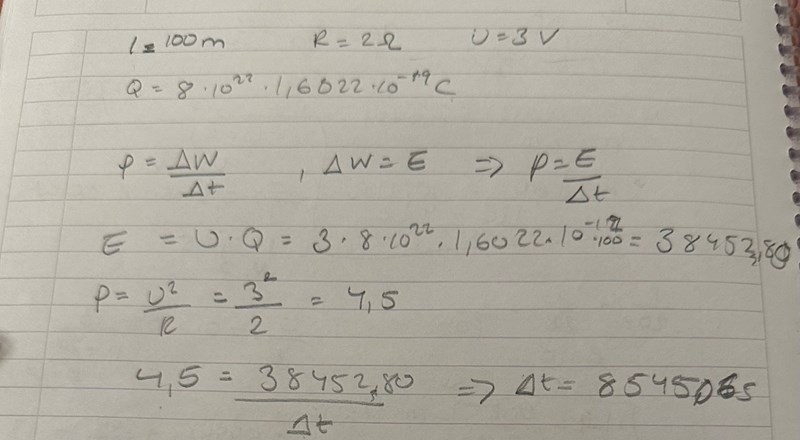 l = 100m R = 2Ω U = 3 V
Q = 8 · 10²² · 1,6022 · 10⁻¹⁹ C
P = ΔW/Δt , ΔW = E ⇒ P = E/Δt
E = U · Q = 3 · 8 · 10²² · 1,6022 · 10⁻¹⁹ · 100 = 38452,80
P = U²/R = 3²/2 = 4,5
4,5 = 38452,80/Δt ⇒ Δt = 8545,06s